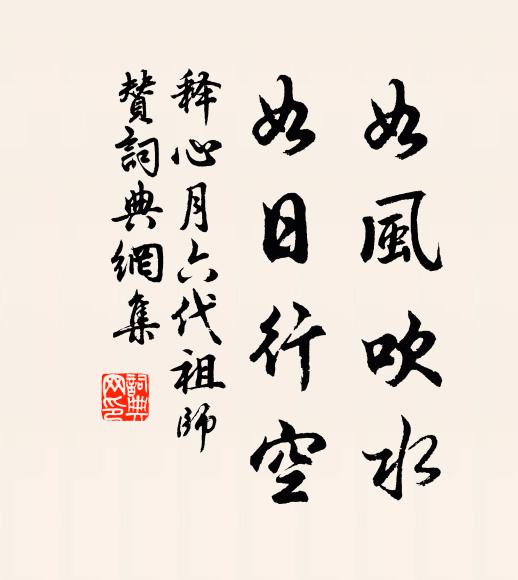 如風吹水
如日行空
释心月六代祖師
贊詞典網集
詞典
网印